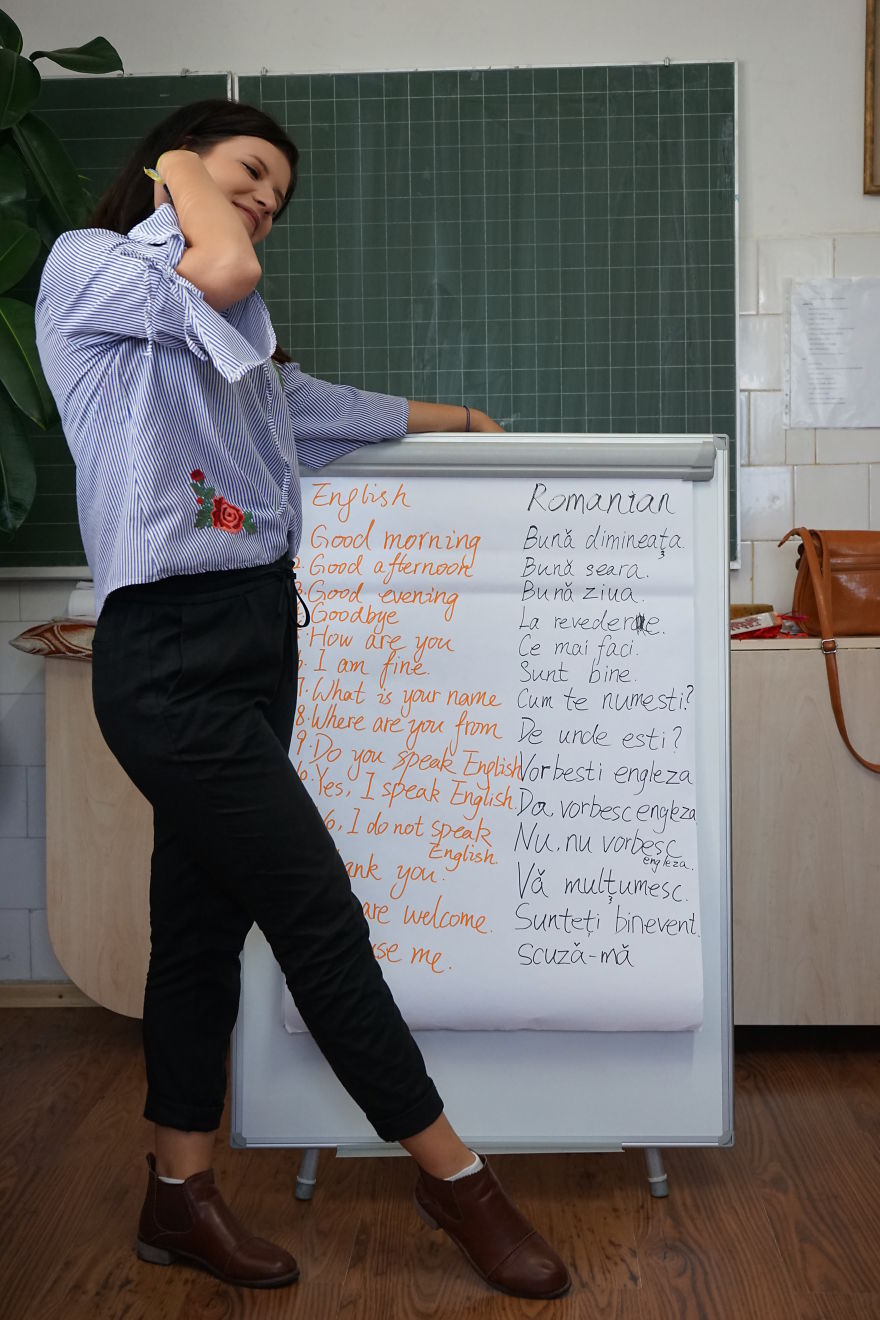 English Romanian
Good morning Bună dimineaţa.
2. Good afternoon Bună seara.
3. Good evening Bună ziua.
Goodbye La revedere.
How are you Ce mai faci.
I am fine. Sunt bine.
7. What is your name Cum te numesti?
8. Where are you from De unde esti?
9. Do you speak English Vorbesti engleza
Yes, I speak English. Da, vorbesc engleza
I do not speak Nu, nu vorbesc
English. engleza.
you. Vă mulţumesc.
are welcome. Sunteţi binevent.
me. scuză-mă